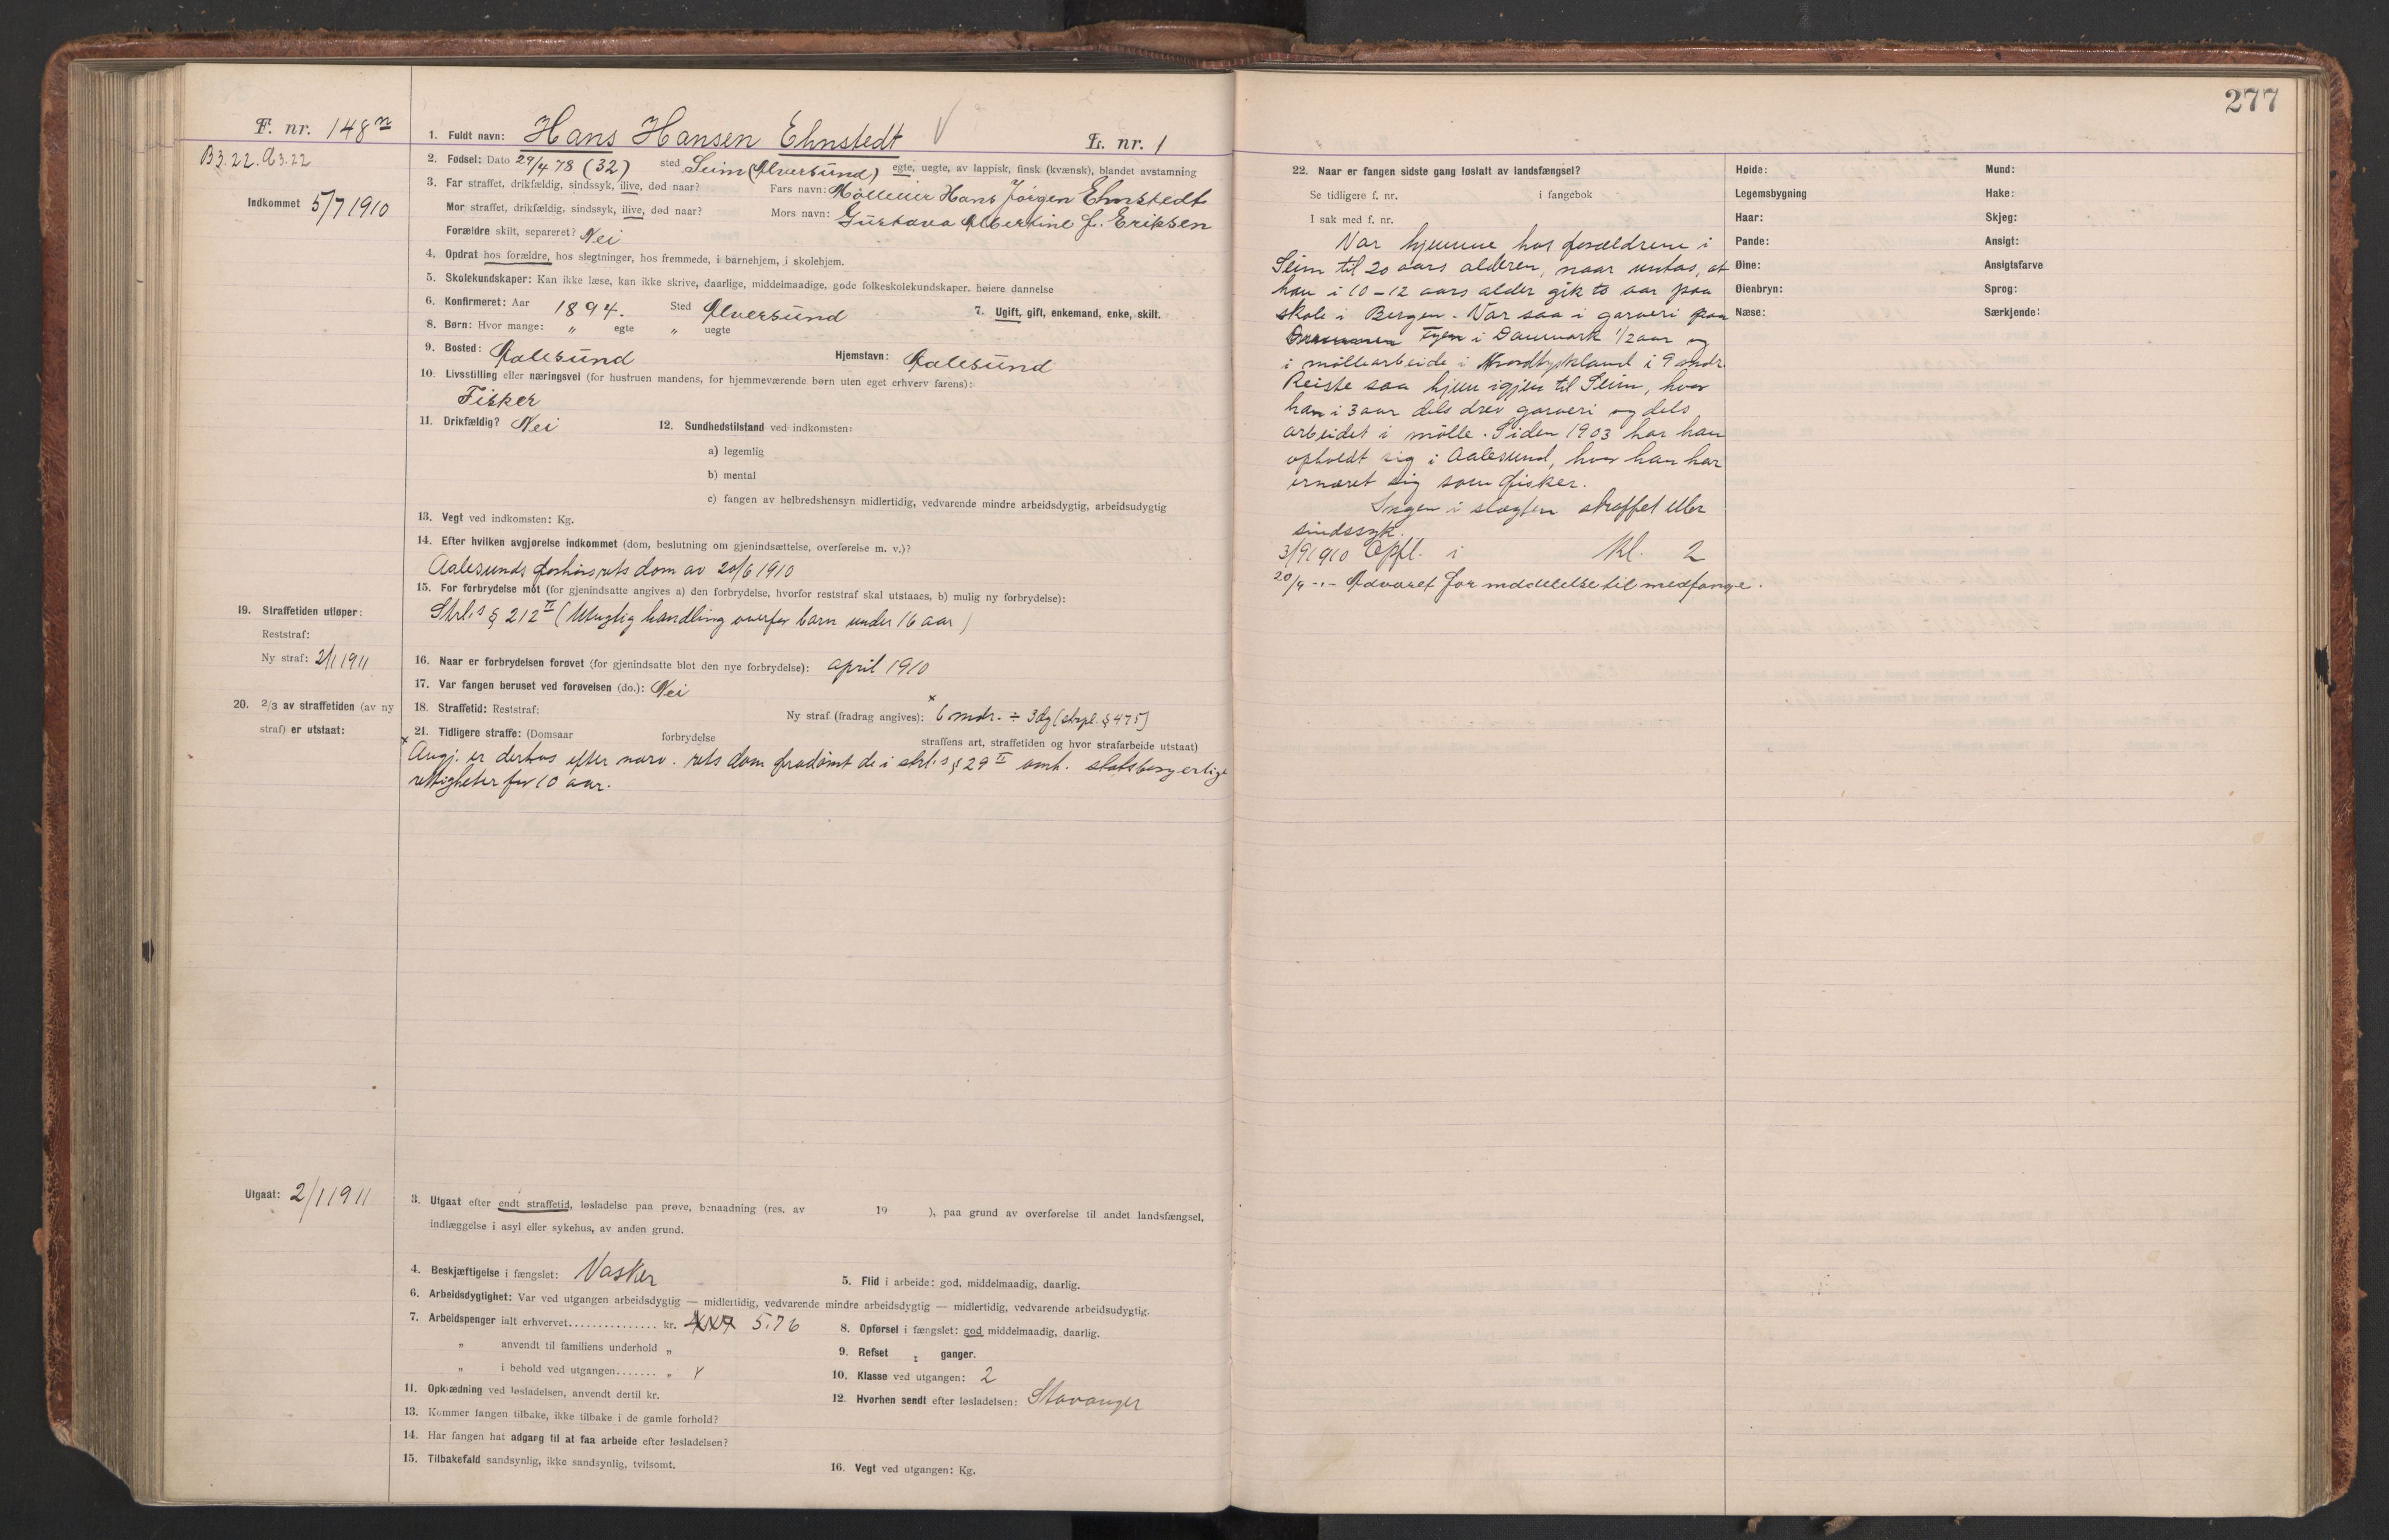 277
F. nr. 148 n
B3.22. A3.22
Indkommet 5/7 1910
1. Fuldt navn: Hans Hansen Ehnstedt V L. nr. 1
2. Fødsel: Dato 29/4 78 (32) sted Seim (Alversund) egte, uegte, av lappisk, finsk (kvænsk), blandet avstamning
3. Far straffet, drikfældig, sindssyk, ilive, død naar? Fars navn: Hans Jørgen Ehnstedt
Mor straffet, drikfældig, sindssyk, ilive, død naar? Mors navn: Gustava Albertine J. Eriksen
Forældre skilt, separeret? Nei
4. Opdrat hos forældre, hos slegtninger, hos fremmede, i barnehjem, i skolehjem.
5. Skolekundskaper: Kan ikke læse, kan ikke skrive, daarlige, middelmaadige, gode folkeskolekundskaper. høiere dannelse
6. Konfirmeret: Aar 1894. Sted Alversund 7. Ugift, gift, enkemand, enke, skilt.
8. Børn: Hvor mange: " egte " uegte
9. Bosted: Aalesund Hjemstavn: Aalesund
10. Livsstilling eller næringsvei (for hustruen mandens, for hjemmeværende børn uten eget erhverv farens):
Fisker
11. Drikfældig? Nei 12. Sundhedstilstand ved indkomsten:
a) legemlig
b) mental
c) fangen av helbredshensyn midlertidig, vedvarende mindre arbeidsdygtig, arbeidsudygtig
13. Vegt ved indkomsten: Kg.
14. Efter hvilken avgjørelse indkommet (dom, beslutning om gjenindsættelse, overførelse m. v.)?
Aalesunds forhørsrets dom av 20/6 1910
15. For forbrydelse mot (for gjenindsatte angives a) den forbrydelse, hvorfor reststraf skal utstaaes, b) mulig ny forbrydelse):
Strl.s § 212 II (Utugtig handling overfor barn under 16 aar)
19. Straffetiden utløper:
Reststraf:
Ny straf: 2/1 1911
16. Naar er forbrydelsen forøvet (for gjenindsatte blot den nye forbrydelse): april 1910
17. Var fangen beruset ved forøvelsen (do.): Nei
20. 2/3 av straffetiden (av ny
straf) er utstaat:
18. Straffetid: Reststraf: Ny straf (fradrag angives): x 6 mdr. ÷ 3 dg (strpl. § 475)
21. Tidligere straffe: (Domsaar forbrydelse straffens art, straffetiden og hvor strafarbeide utstaat)
x Angj. er derhos efter nævn. rets dom fradømt de i strl.s § 29 II omh. statsborgerlige
rettigheter for 10 aar.
Utgaat: 2/1 1911
3. Utgaat efter endt straffetid, løsladelse paa prøve, benaadning (res. av 19 ), paa grund av overførelse til andet landsfængsel,
indlæggelse i asyl eller sykehus, av anden grund.
4. Beskjæftigelse i fængslet: Vasker 5. Flid i arbeide: god, middelmaadig, daarlig.
6. Arbeidsdygtighet: Var ved utgangen arbeidsdygtig — midlertidig, vedvarende mindre arbeidsdygtig — midlertidig, vedvarende arbeidsudygtig.
7. Arbeidspenger ialt erhvervet............... kr. 5.76 8. Opførsel i fængslet: god middelmaadig, daarlig.
" anvendt til familiens underhold " 9. Refset : ganger.
" i behold ved utgangen....... " 10. Klasse ved utgangen: 2
11. Opklædning ved løsladelsen, anvendt dertil kr. 12. Hvorhen sendt efter løsladelsen: Stavanger
13. Kommer fangen tilbake, ikke tilbake i de gamle forhold?
14. Har fangen hat adgang til at faa arbeide efter løsladelsen?
15. Tilbakefald sandsynlig, ikke sandsynlig, tvilsomt. 16. Vegt ved utgangen: Kg.
22. Naar er fangen sidste gang løslatt av landsfængsel?
Se tidligere f. nr. i fangebok
I sak med f. nr.
Var hjemme hos forældrene i
Seim til 20 aars alderen, naar untas, at
han i 10–12 aars alder gik to aar paa
skole i Bergen. Var saa i garveri paa
Fyen i Danmark 1/2 aar og
i møllearbeide i Nordtyskland i 9 mdr.
Reiste saa hjem igjen til Seim, hvor
han i 3 aar dels drev garveri og dels
arbeidet i mølle. Siden 1903 har han
opholdt sig i Aalesund, hvor han har
ernæret sig som fisker.
Ingen i slægten straffet eller
sindssyk.
3/9 1910 Opfl. i Kl. 2
20/9 -"- Advaret for meddelelse til medfange.
Høide:
Legemsbygning
Haar:
Pande:
Øine:
Øienbryn:
Næse:
Mund:
Hake:
Skjeg:
Ansigt:
Ansigtsfarve
Sprog:
Særkjende: